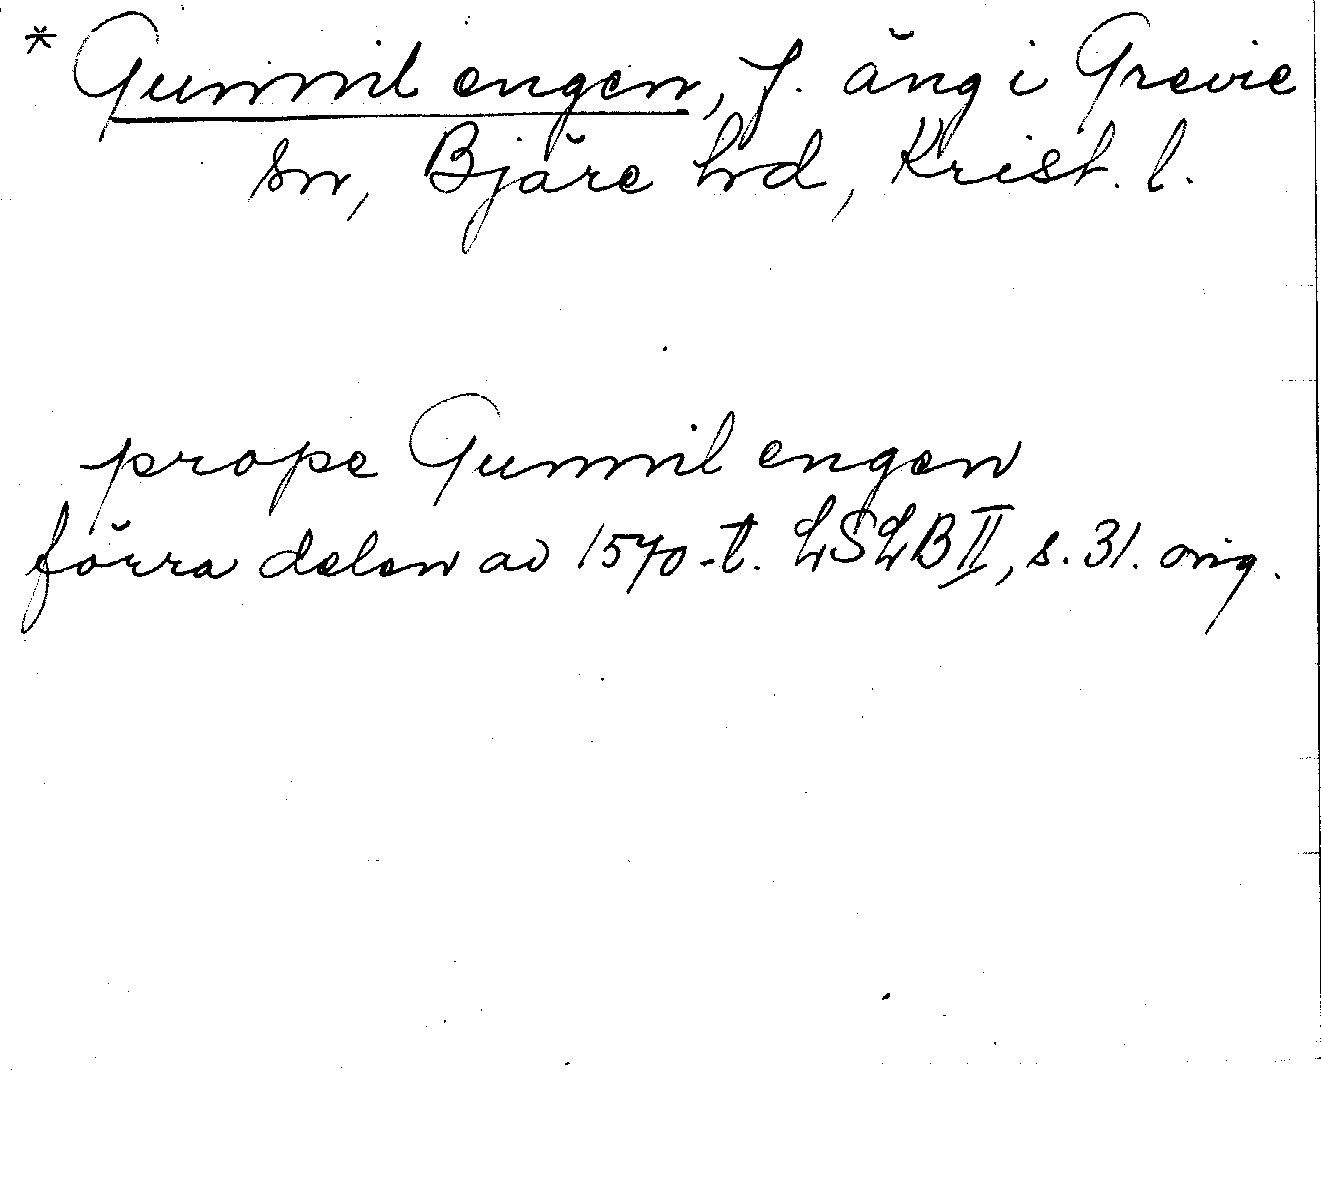 * Gunnil engen, f. äng i Grevie
sn, Bjäre hd, Krist. l.
prope Gunnil engen
förra delen av 1570-t. LSLB II, s. 31. orig.